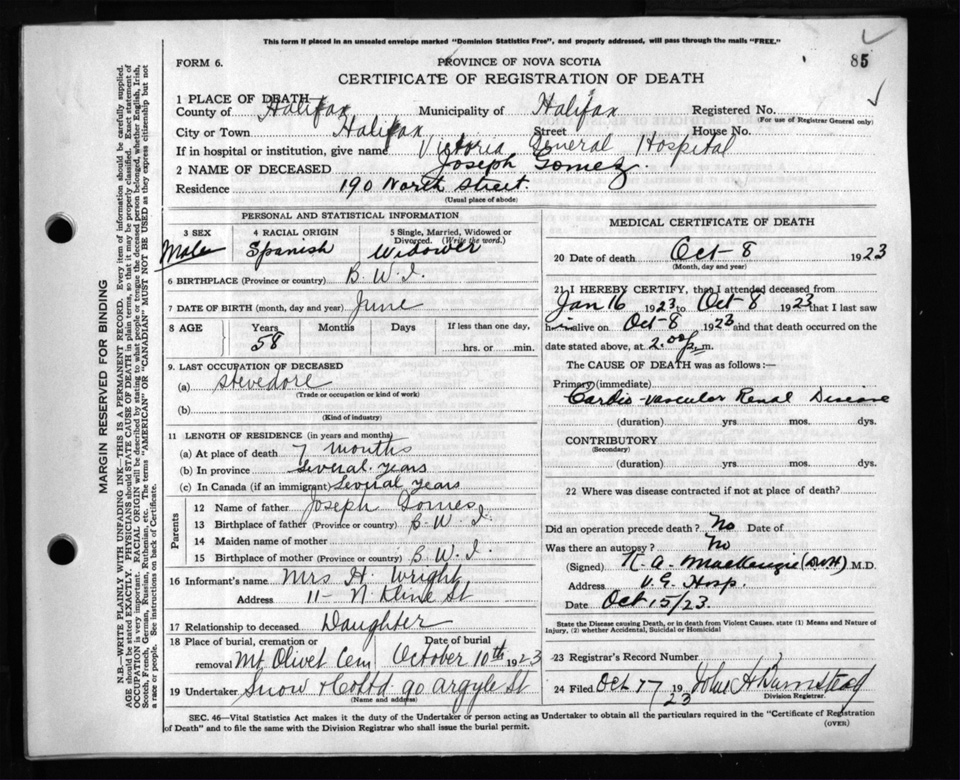 This form if placed in an unsealed envelope marked "Dominion Statistics Free", and properly addressed, will pass through the mails "FREE."
FORM 6.
PROVINCE OF NOVA SCOTIA
85
CERTIFICATE OF REGISTRATION OF DEATH
1 PLACE OF DEATH
County of Halifax Municipality of Halifax Registered No.
(For use of Registrar General only)
City or Town Halifax Street House No.
If in hospital or institution, give name Victoria General Hospital
2 NAME OF DECEASED Joseph Gomez.
Residence 190 North Street.
(Usual place of abode)
PERSONAL AND STATISTICAL INFORMATION
3 SEX 4 RACIAL ORIGIN 5 Single, Married, Widowed or Divorced. (Write the word.)
Male Spanish Widower
6 BIRTHPLACE (Province or country) B.W.I.
7 DATE OF BIRTH (month, day and year) June
8 AGE Years Months Days If less than one day,
58 hrs. or min.
9. LAST OCCUPATION OF DECEASED
(a) Stevedore
(Trade or occupation or kind of work)
(b)
(Kind of industry)
11 LENGTH OF RESIDENCE (in years and months)
(a) At place of death 7 months
(b) In province Several years
(c) In Canada (if an immigrant) Several years
Parents
12 Name of father Joseph Gomes
13 Birthplace of father (Province or country) B.W.I.
14 Maiden name of mother
15 Birthplace of mother (Province or country) B.W.I.
16 Informant's name Mrs H. Wright
Address 11- N Kline St
17 Relationship to deceased Daughter
18 Place of burial, cremation or removal Mt. Olivet Cem
Date of burial October 10th 1923
19 Undertaker Snow & Co Ltd 90 Argyle St
(Name and address)
MEDICAL CERTIFICATE OF DEATH
20 Date of death Oct-8 1923
(Month, day and year)
21 I HEREBY CERTIFY, that I attended deceased from
Jan 16 1923 to Oct-8 1923 that I last saw
him alive on Oct-8 1923 and that death occurred on the
date stated above, at 2.00 p.m.
The CAUSE OF DEATH was as follows:—
Primary (immediate)
Cardio-vascular Renal Disease
(duration) yrs. mos. dys.
CONTRIBUTORY
(Secondary)
(duration) yrs. mos. dys.
22 Where was disease contracted if not at place of death?
Did an operation precede death? No Date of
Was there an autopsy? No
(Signed) K. A. MacKenzie M.D.
Address V.G. Hosp.
Date Oct 15/23.
State the Disease causing Death, or in death from Violent Causes. state (1) Means and Nature of
Injury, (2) whether Accidental, Suicidal or Homicidal
23 Registrar's Record Number
24 Filed Oct 17 1923 John H Barnstead
Division Registrar.
SEC. 46—Vital Statistics Act makes it the duty of the Undertaker or person acting as Undertaker to obtain all the particulars required in the "Certificate of Registration
of Death" and to file the same with the Division Registrar who shall issue the burial permit.
(OVER)
MARGIN RESERVED FOR BINDING
N.B.—WRITE PLAINLY WITH UNFADING INK—THIS IS A PERMANENT RECORD. Every item of information should be carefully supplied.
AGE should be stated EXACTLY. PHYSICIANS should STATE CAUSE OF DEATH in plain terms, so that it may be properly classified. Exact statement of
OCCUPATION is very important. RACIAL ORIGIN will be described by stating to what people or tongue the deceased person belonged, whether English, Irish,
Scotch, French, German, Russian, Ruthenian, etc. The terms "AMERICAN" OR "CANADIAN" MUST NOT BE USED as they express citizenship but not
a race or people. See instructions on back of Certificate.